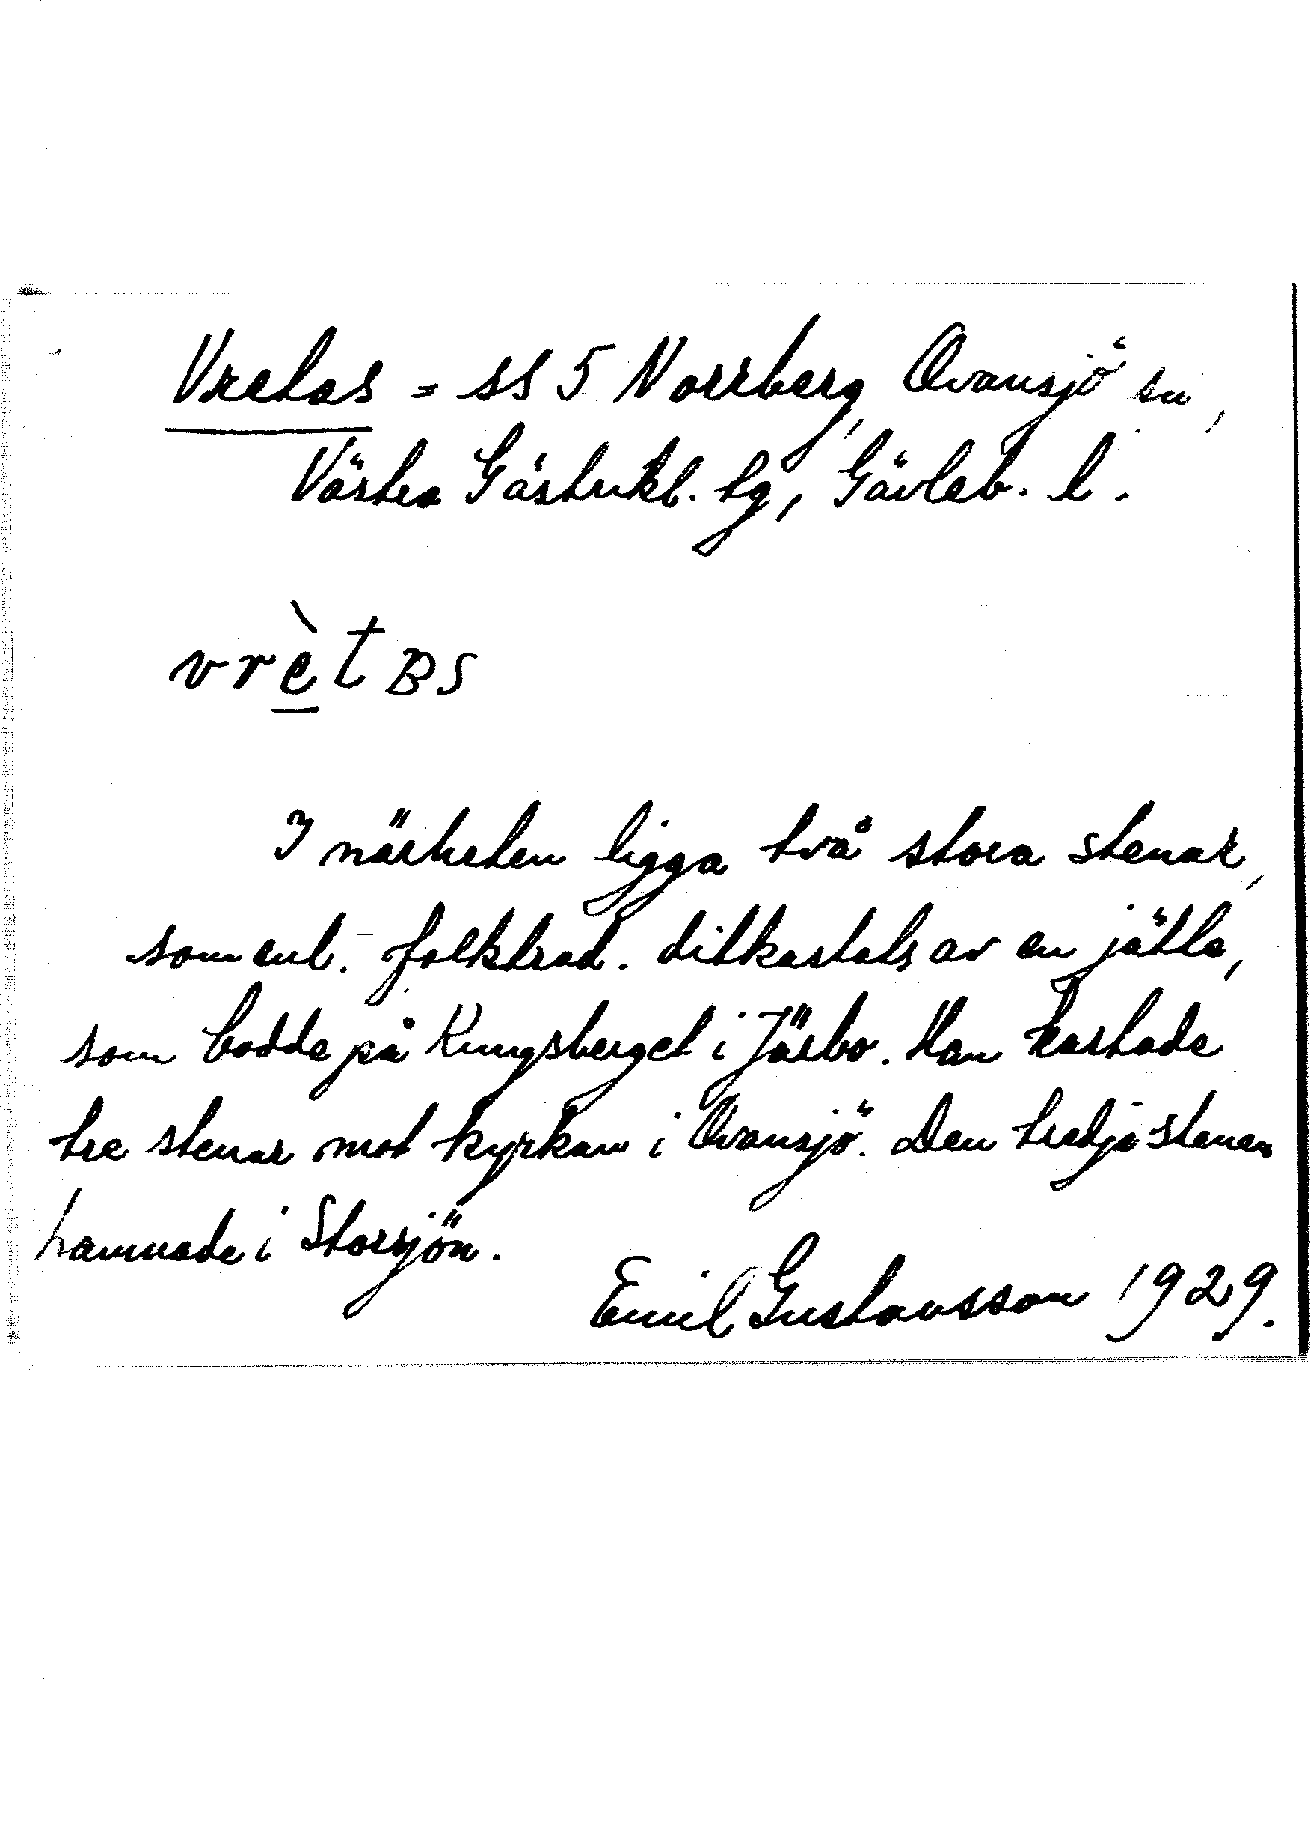 Vretas = ss 5 Norrberg, Ovansjö sn,
Västra Gästrikl. tg, Gävleb. l.
vrètBS
I närheten ligga två stora stenar,
som enl. folktrad. ditkastats av en jätte,
som bodde på Kungsberget i Järbo. Han kastade
tre stenar mot kyrkan i Ovansjö. Den tredje stenen
hamnade i Storsjön.
Emil Gustavsson 1929.